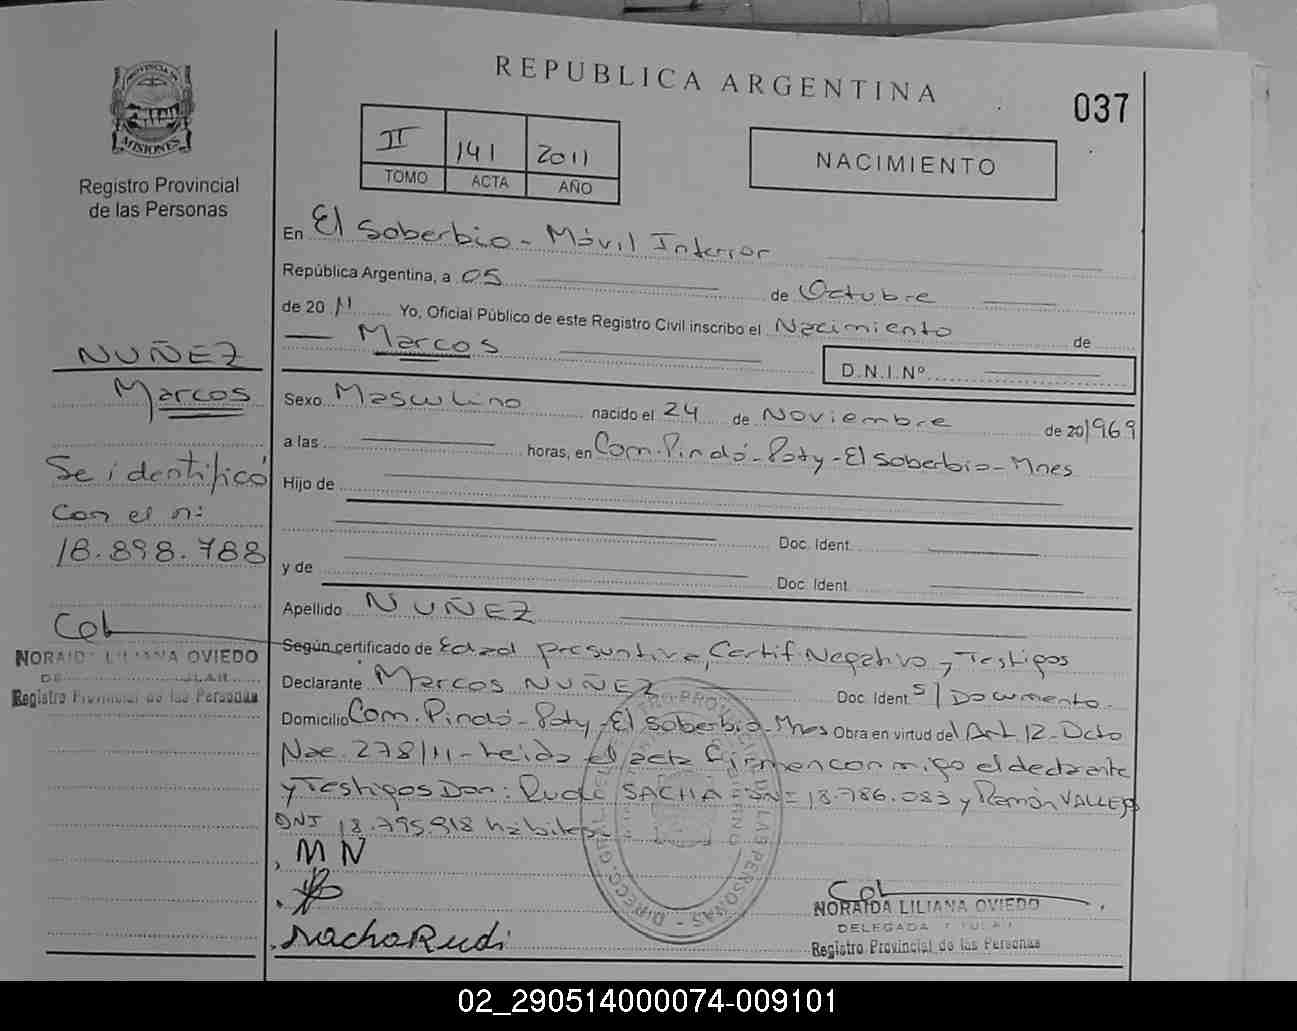 REPUBLICA ARGENTINA
037
PROVINCIA DE
MISIONES
Registro Provincial
de las Personas
II 141 2011
TOMO ACTA AÑO
NACIMIENTO
En El Soberbio - Móvil Interior
República Argentina, a 05 de Octubre
de 20 11 Yo, Oficial Público de este Registro Civil inscribo el Nacimiento de
Marcos
D.N.I.Nº
Sexo Masculino nacido el 24 de Noviembre de 20 1969
a las horas, en Com. Pindó - Poty - El Soberbio - Mnes
Hijo de
Doc. Ident.
y de
Doc. Ident.
Apellido NUÑEZ
Según certificado de Edad presuntiva, Certif Negativo y Testigos
Declarante Marcos NUÑEZ Doc. Ident. S/Documento.
Domicilio Com. Pindó - Poty - El Soberbio - Mnes Obra en virtud del Art 12 - Dcto
Nac. 278/11 - Leida el acta firman conmigo el declarante
y Testigos Don: Rudi SACHA = DNI 18.786.083 y Ramón VALLEJO
DNI 18.795.918 hábiles
MN
Nacho Rudi
NORAIDA LILIANA OVIEDO
DELEGADA TITULAR
Registro Provincial de las Personas
NUÑEZ
Marcos
Se identificó
con el n:
18.898.788
NORAIDA LILIANA OVIEDO
Registro Provincial de las Personas
02_290514000074-009101